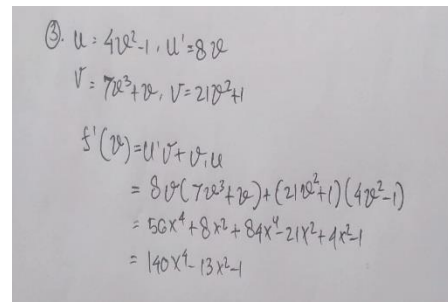 ③. u = 4x²-1, u' = 8x
v = 7x³+x, v = 21x²+1
f'(x) = u'v + v.u
= 8x(7x³+x)+(21x²+1)(4x²-1)
= 56x⁴+8x²+84x⁴-21x²+4x²-1
= 140x⁴-13x²-1